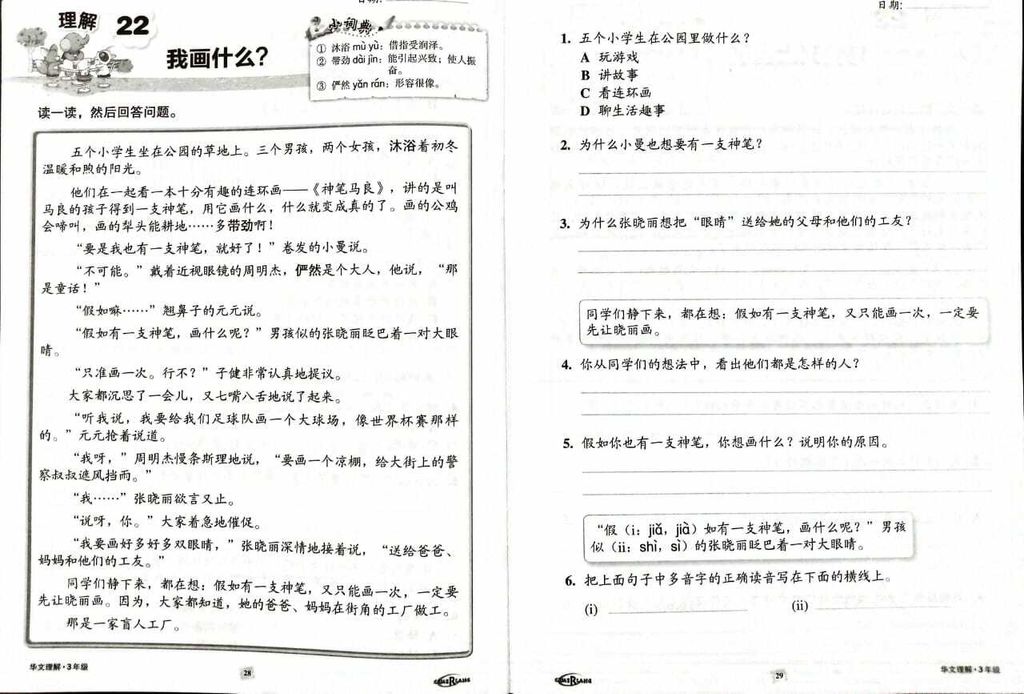 理解 22
我画什么？
小词典
① 沐浴 mù yù：借指受润泽。
② 带劲 dài jìn：能引起兴致；使人振
奋。
③ 俨然 yǎn rán：形容很像。
读一读，然后回答问题。
五个小学生坐在公园的草地上。三个男孩，两个女孩，沐浴着初冬
温暖和煦的阳光。
他们在一起看一本十分有趣的连环画——《神笔马良》，讲的是叫
马良的孩子得到一支神笔，用它画什么，什么就变成真的了。画的公鸡
会啼叫，画的犁头能耕地……多带劲啊！
“要是我也有一支神笔，就好了！”卷发的小曼说。
“不可能。”戴着近视眼镜的周明杰，俨然是个大人，他说，“那
是童话！”
“假如嘛……”翘鼻子的元元说。
“假如有一支神笔，画什么呢？”男孩似的张晓丽眨巴着一对大眼
睛。
“只准画一次。行不？”子健非常认真地提议。
大家都沉思了一会儿，又七嘴八舌地说了起来。
“听我说，我要给我们足球队画一个大球场，像世界杯赛那样
的。”元元抢着说道。
“我呀，”周明杰慢条斯理地说，“要画一个凉棚，给大街上的警
察叔叔遮风挡雨。”
“我……”张晓丽欲言又止。
“说呀，你。”大家着急地催促。
“我要画好多好多双眼睛，”张晓丽深情地接着说，“送给爸爸、
妈妈和他们的工友。”
同学们静下来，都在想：假如有一支神笔，又只能画一次，一定要
先让晓丽画。因为，大家都知道，她的爸爸、妈妈在街角的工厂做工。
那是一家盲人工厂。
华文理解·3年级
28
日期：
1. 五个小学生在公园里做什么？
A 玩游戏
B 讲故事
C 看连环画
D 聊生活趣事
2. 为什么小曼也想要有一支神笔？
3. 为什么张晓丽想把“眼睛”送给她的父母和他们的工友？
同学们静下来，都在想：假如有一支神笔，又只能画一次，一定要
先让晓丽画。
4. 你从同学们的想法中，看出他们都是怎样的人？
5. 假如你也有一支神笔，你想画什么？说明你的原因。
“假（i：jiǎ，jià）如有一支神笔，画什么呢？”男孩
似（ii：shì，sì）的张晓丽眨巴着一对大眼睛。
6. 把上面句子中多音字的正确读音写在下面的横线上。
(i) (ii)
29
华文理解·3年级